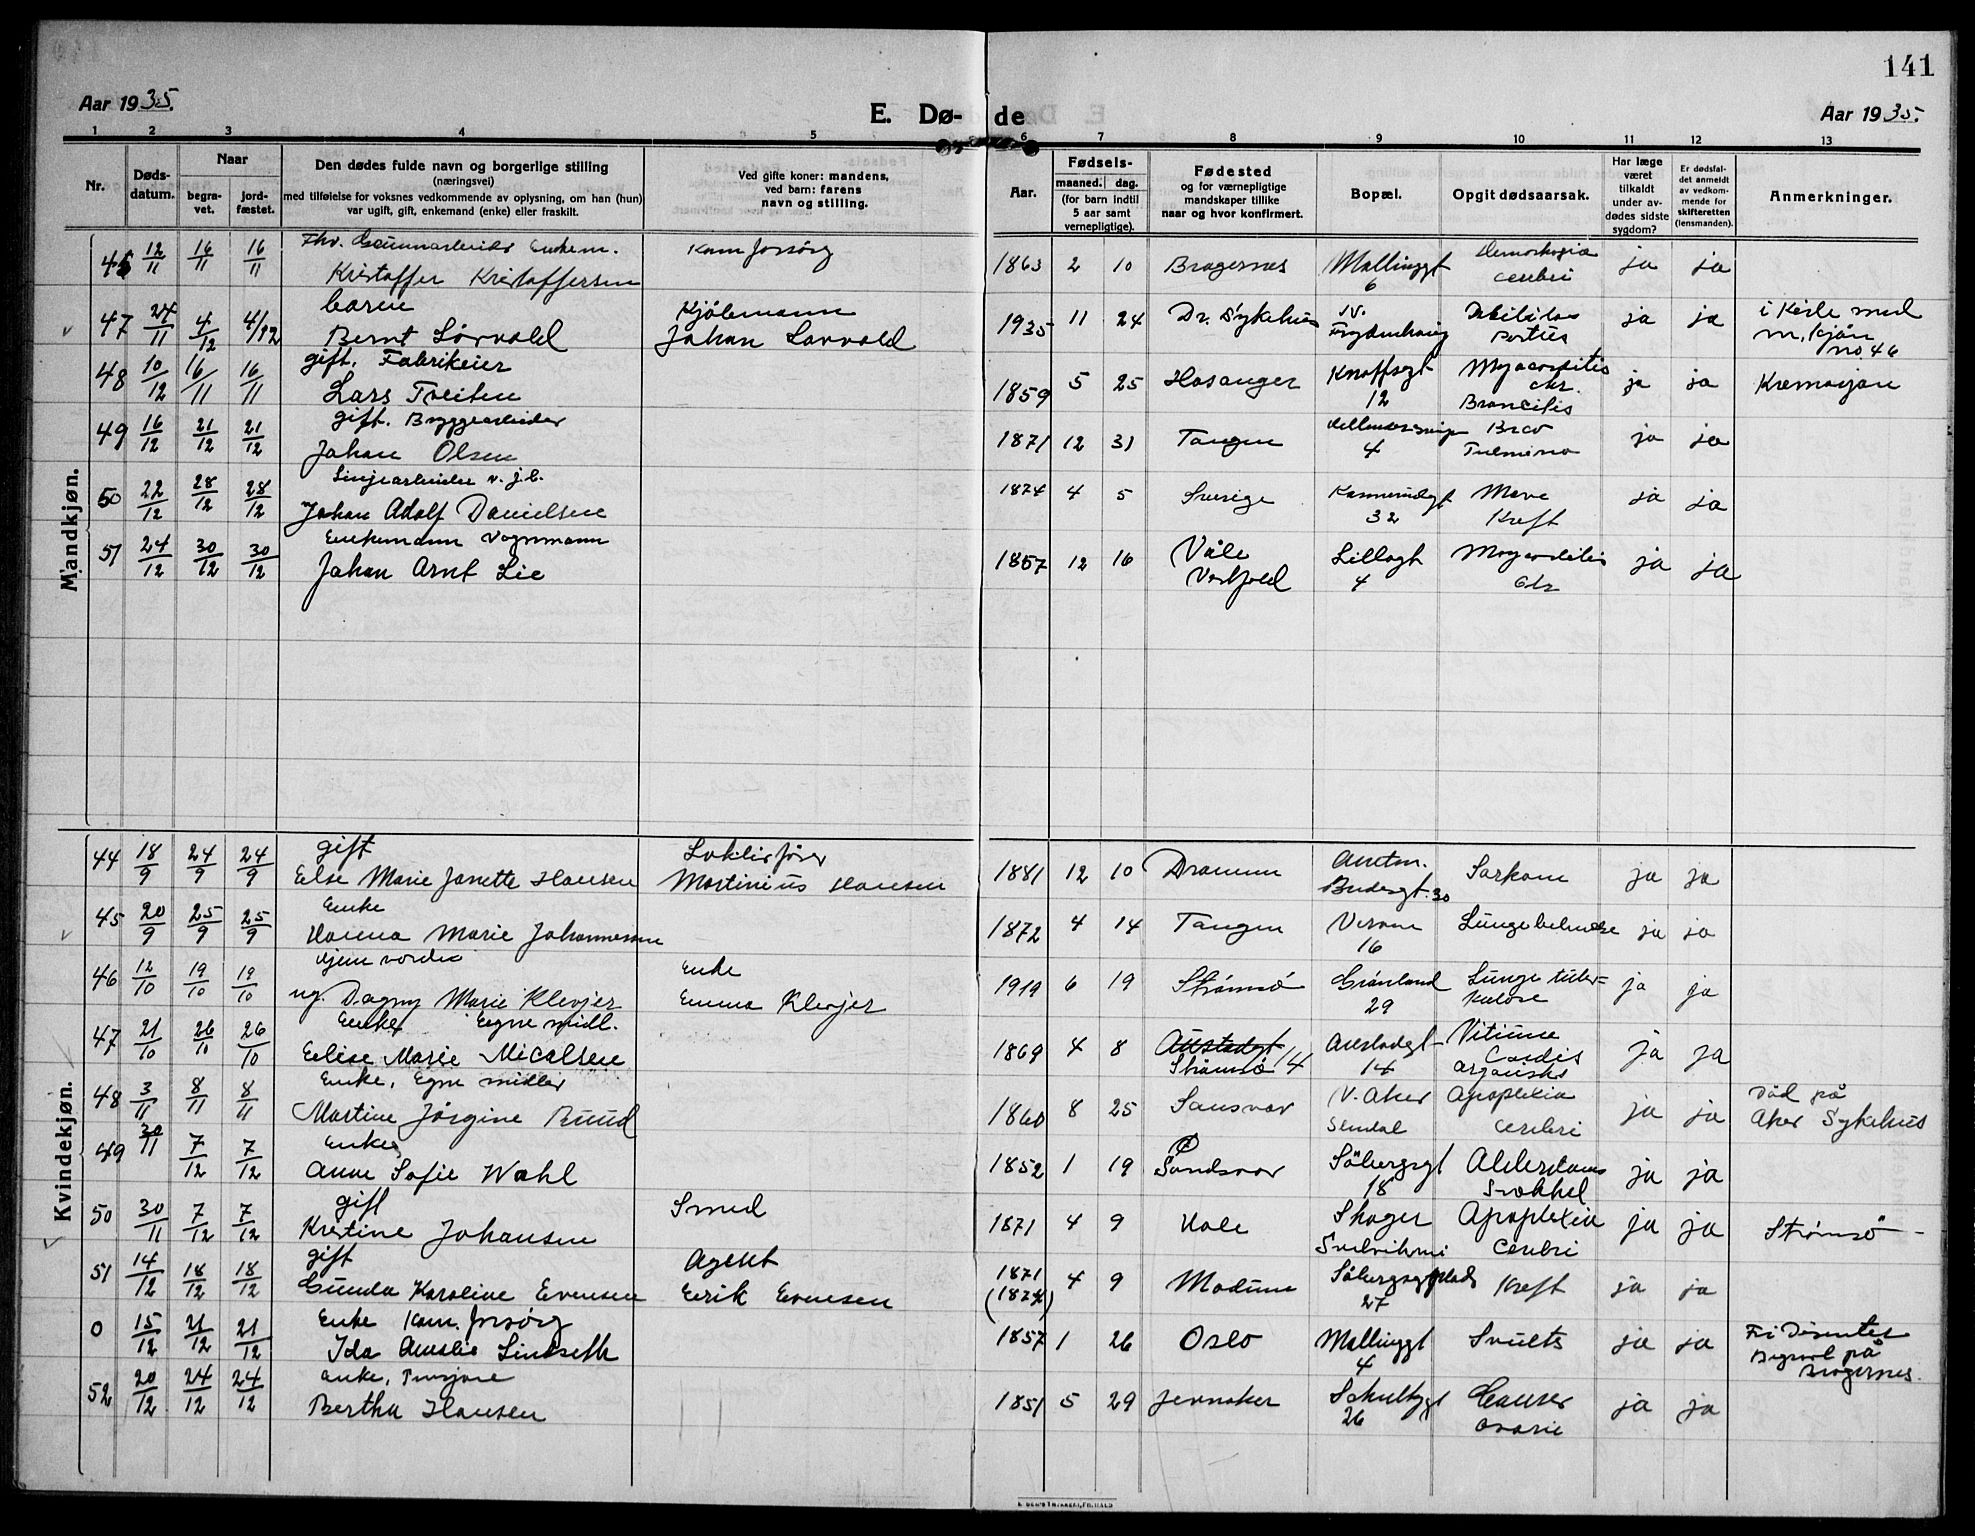 141
Aar 1935.
E. Dø-
de
Aar 1935.
1 2 3 4 5 6 7 8 9 10 11 12 13
Nr.
Døds-
datum.
Naar
begra-
vet.
jord-
fæstet.
Den dødes fulde navn og borgerlige stilling
(næringsvei)
med tilføielse for voksnes vedkommende av oplysning, om han (hun)
var ugift, gift, enkemand (enke) eller fraskilt.
Ved gifte koner: mandens,
ved barn: farens
navn og stilling.
Aar.
Fødsels-
maaned. dag.
(for barn indtil
5 aar samt
vernepligtige).
Fødested
og for værnepligtige
mandskaper tillike
naar og hvor konfirmert.
Bopæl.
Opgit dødsaarsak.
Har læge
været
tilkaldt
under av-
dødes sidste
sygdom?
Er dødsfal-
det anmeldt
av vedkom-
mende for
skifteretten
(lensmanden).
Anmerkninger.
Mandkjøn.
45 12/11 16/11 16/11 Fhv. Enkem. Kom forsørg
Kristoffer Kristoffersen
1863 2 10 Bragernes Mallinggt 6 cerebri ja ja
47 24/11 4/12 4/12 barn Kjølemann
Bernt Sørvold Johan Sørvold
1935 11 24 Dr. Sykehus Frydenhaug Debilitas ja ja i kiste med
no 46
48 10/12 16/11 16/11 gift. Fabrikeier
Lars Tveiten
1859 5 25 Hosanger Knoffsgt 12 Myocarditis chr. ja ja
49 16/12 21/12 21/12 gift. Bryggearbeider
Johan Olsen
1871 12 31 Tangen 4 ja ja
50 22/12 28/12 28/12 Linjearbeider v. j.b.
Johan Adolf Danielsen
1874 4 5 Sverige 32 Mave Kreft ja ja
51 24/12 30/12 30/12 Enkemann Vognmann
Johan Arnt Lie
1857 12 16 Våle Vestfold Lillogt 4 Myocarditis Chr ja ja
Kvindekjøn.
44 18/9 24/9 24/9 gift
Else Marie Janette Hansen Martinius Hansen
1881 12 10 Drammen 30 Sarkom ja ja
45 20/9 25/9 25/9 Enke
Hanna Marie Johannesen
1872 4 14 Tangen Verven 16 ja ja
46 12/10 19/10 19/10 Hjem Enke
ug. Dagny Marie Klevjer Emma Klevjer
1919 6 19 Strømsø Grønland 29 Lunge tuber=
kulose ja ja
47 21/10 26/10 26/10 Enke Egne midl.
Elise Marie Micalsen
1869 4 8 Strømsø 14 Vitium Cordis ja ja
48 3/11 8/11 8/11 Enke, Egne midler
Martine Jørgine Ruud
1860 8 25 Sansvar V. Aker Apoplexia cerebri ja ja Död på
Aker Sykehus
49 30/11 7/12 7/12 Enke
Anne Sofie Wahl
1852 1 19 Sandsvær Søbergsgt 18 Alderdoms Svakhet ja ja
50 30/11 7/12 7/12 gift Smed
Kristine Johansen
1871 4 9 Skoger Apoplexia Cerebri ja ja Strømsø
51 14/12 18/12 18/12 gift Agent
Gunda Karoline Evensen Erik Evensen
1871
(1874) 4 9 Modum 27 Kreft ja ja
0 15/12 21/12 21/12 Enke Kom. forsørg
Ida Amalie Lindseth
1857 1 26 Oslo Mallinggt 4 ja ja
på
Bragernes.
52 20/12 24/12 24/12 enke,
Bertha Hansen
1851 5 29 Jevnaker Schultzgt 26 Cancer ovarie ja ja